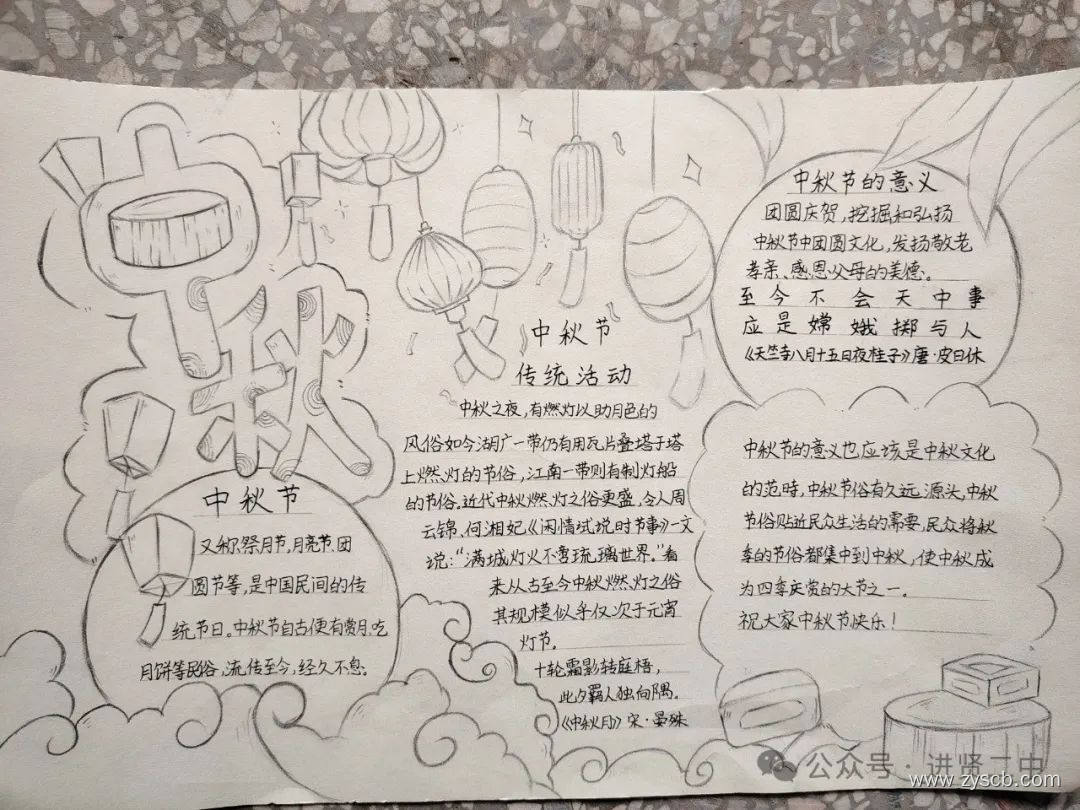 中秋
中秋节
又称祭月节,月亮节.团
圆节等,是中国民间的传
统节日。中秋节自古便有赏月.吃
月饼等民俗,流传至今,经久不息.
中秋节
传统活动
中秋之夜,有燃灯以助月色的
风俗如今湖广一带仍有用瓦片叠塔于塔
上燃灯的节俗,江南一带则有制灯船
的节俗.近代中秋燃灯之俗更盛,令人周
云锦、何湘妃《闲情试说时节事》一文
说:“满城灯火不啻琉璃世界。”看
来从古至今中秋燃灯之俗
其规模似乎仅次于元宵
灯节。
十轮霜影转庭梧,
此夕羁人独向隅。
《中秋月》宋·晏殊
中秋节的意义
团圆庆贺,挖掘和弘扬
中秋节中团圆文化,发扬敬老
孝亲、感恩父母的美德。
至今不会天中事
应是嫦娥掷与人
《天竺寺八月十五日夜桂子》唐·皮日休
中秋节的意义也应该是中秋文化
的范畴,中秋节俗有久远源头,中秋
节俗贴近民众生活的需要,民众将秋
季的节俗都集中到中秋,使中秋成
为四季庆赏的大节之一。
祝大家中秋节快乐!
公众号·进贤二中
www.zyscb.com